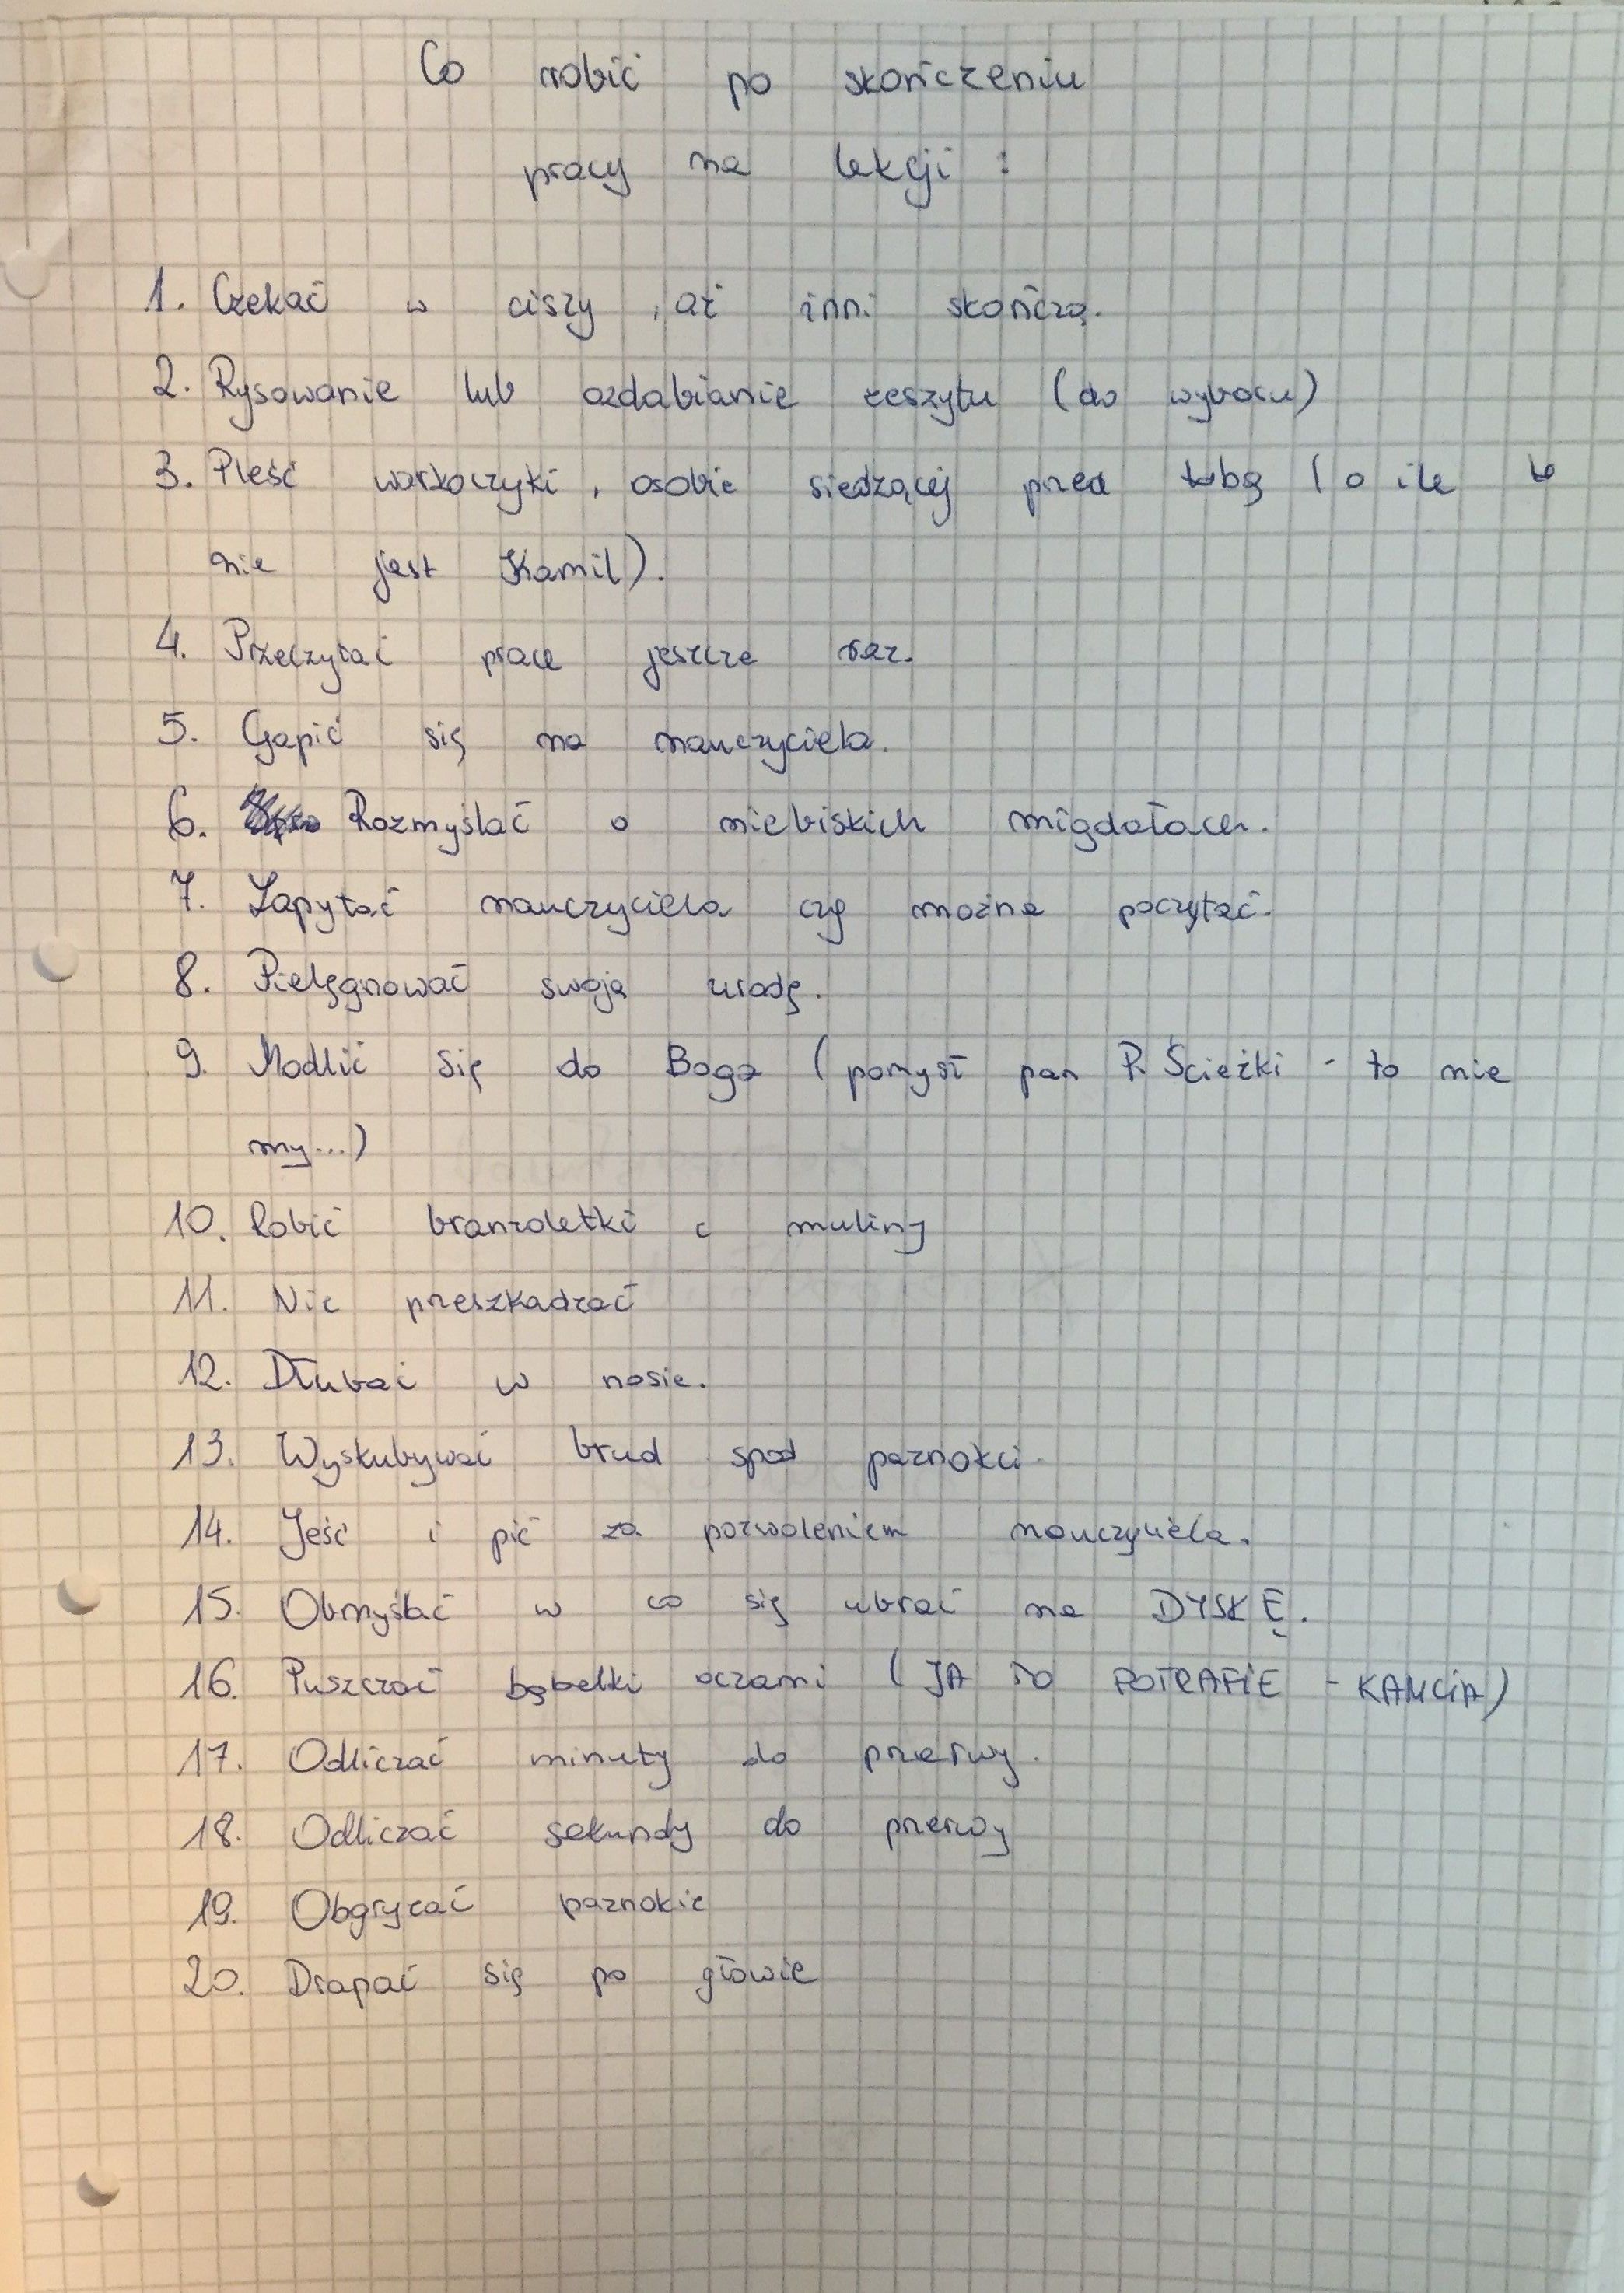 Co robić po skończeniu
pracy na lekcji :
1. Czekać w ciszy , aż inni skończą.
2. Rysowanie lub ozdabianie zeszytu (do wyboru)
3. Pleść warkoczyki , osobie siedzącej przed tobą ( o ile to
nie jest Kamil).
4. Przeczytać prace jeszcze raz.
5. Gapić się na nauczyciela.
6. Rozmyślać o niebiskich migdałach.
7. Zapytać nauczyciela czy można poczytać.
8. Pielęgnować swoja urodę.
9. Modlić się do Boga (pomysł pan P. Ścieżki - to nie
my...)
10. Robić branzoletki z muliny
11. Nie przeszkadzać
12. Dłubać w nosie.
13. Wyskubywać brud spod paznokci.
14. Jeść i pić za pozwoleniem nauczyciela.
15. Obmyślać w co się ubrać na DYSKĘ.
16. Puszczać bąbelki oczami (JA TO POTRAFIE - KAMCIA)
17. Odliczać minuty do przerwy.
18. Odliczać sekundy do przerwy
19. Obgryzać paznokcie
20. Drapać się po głowie